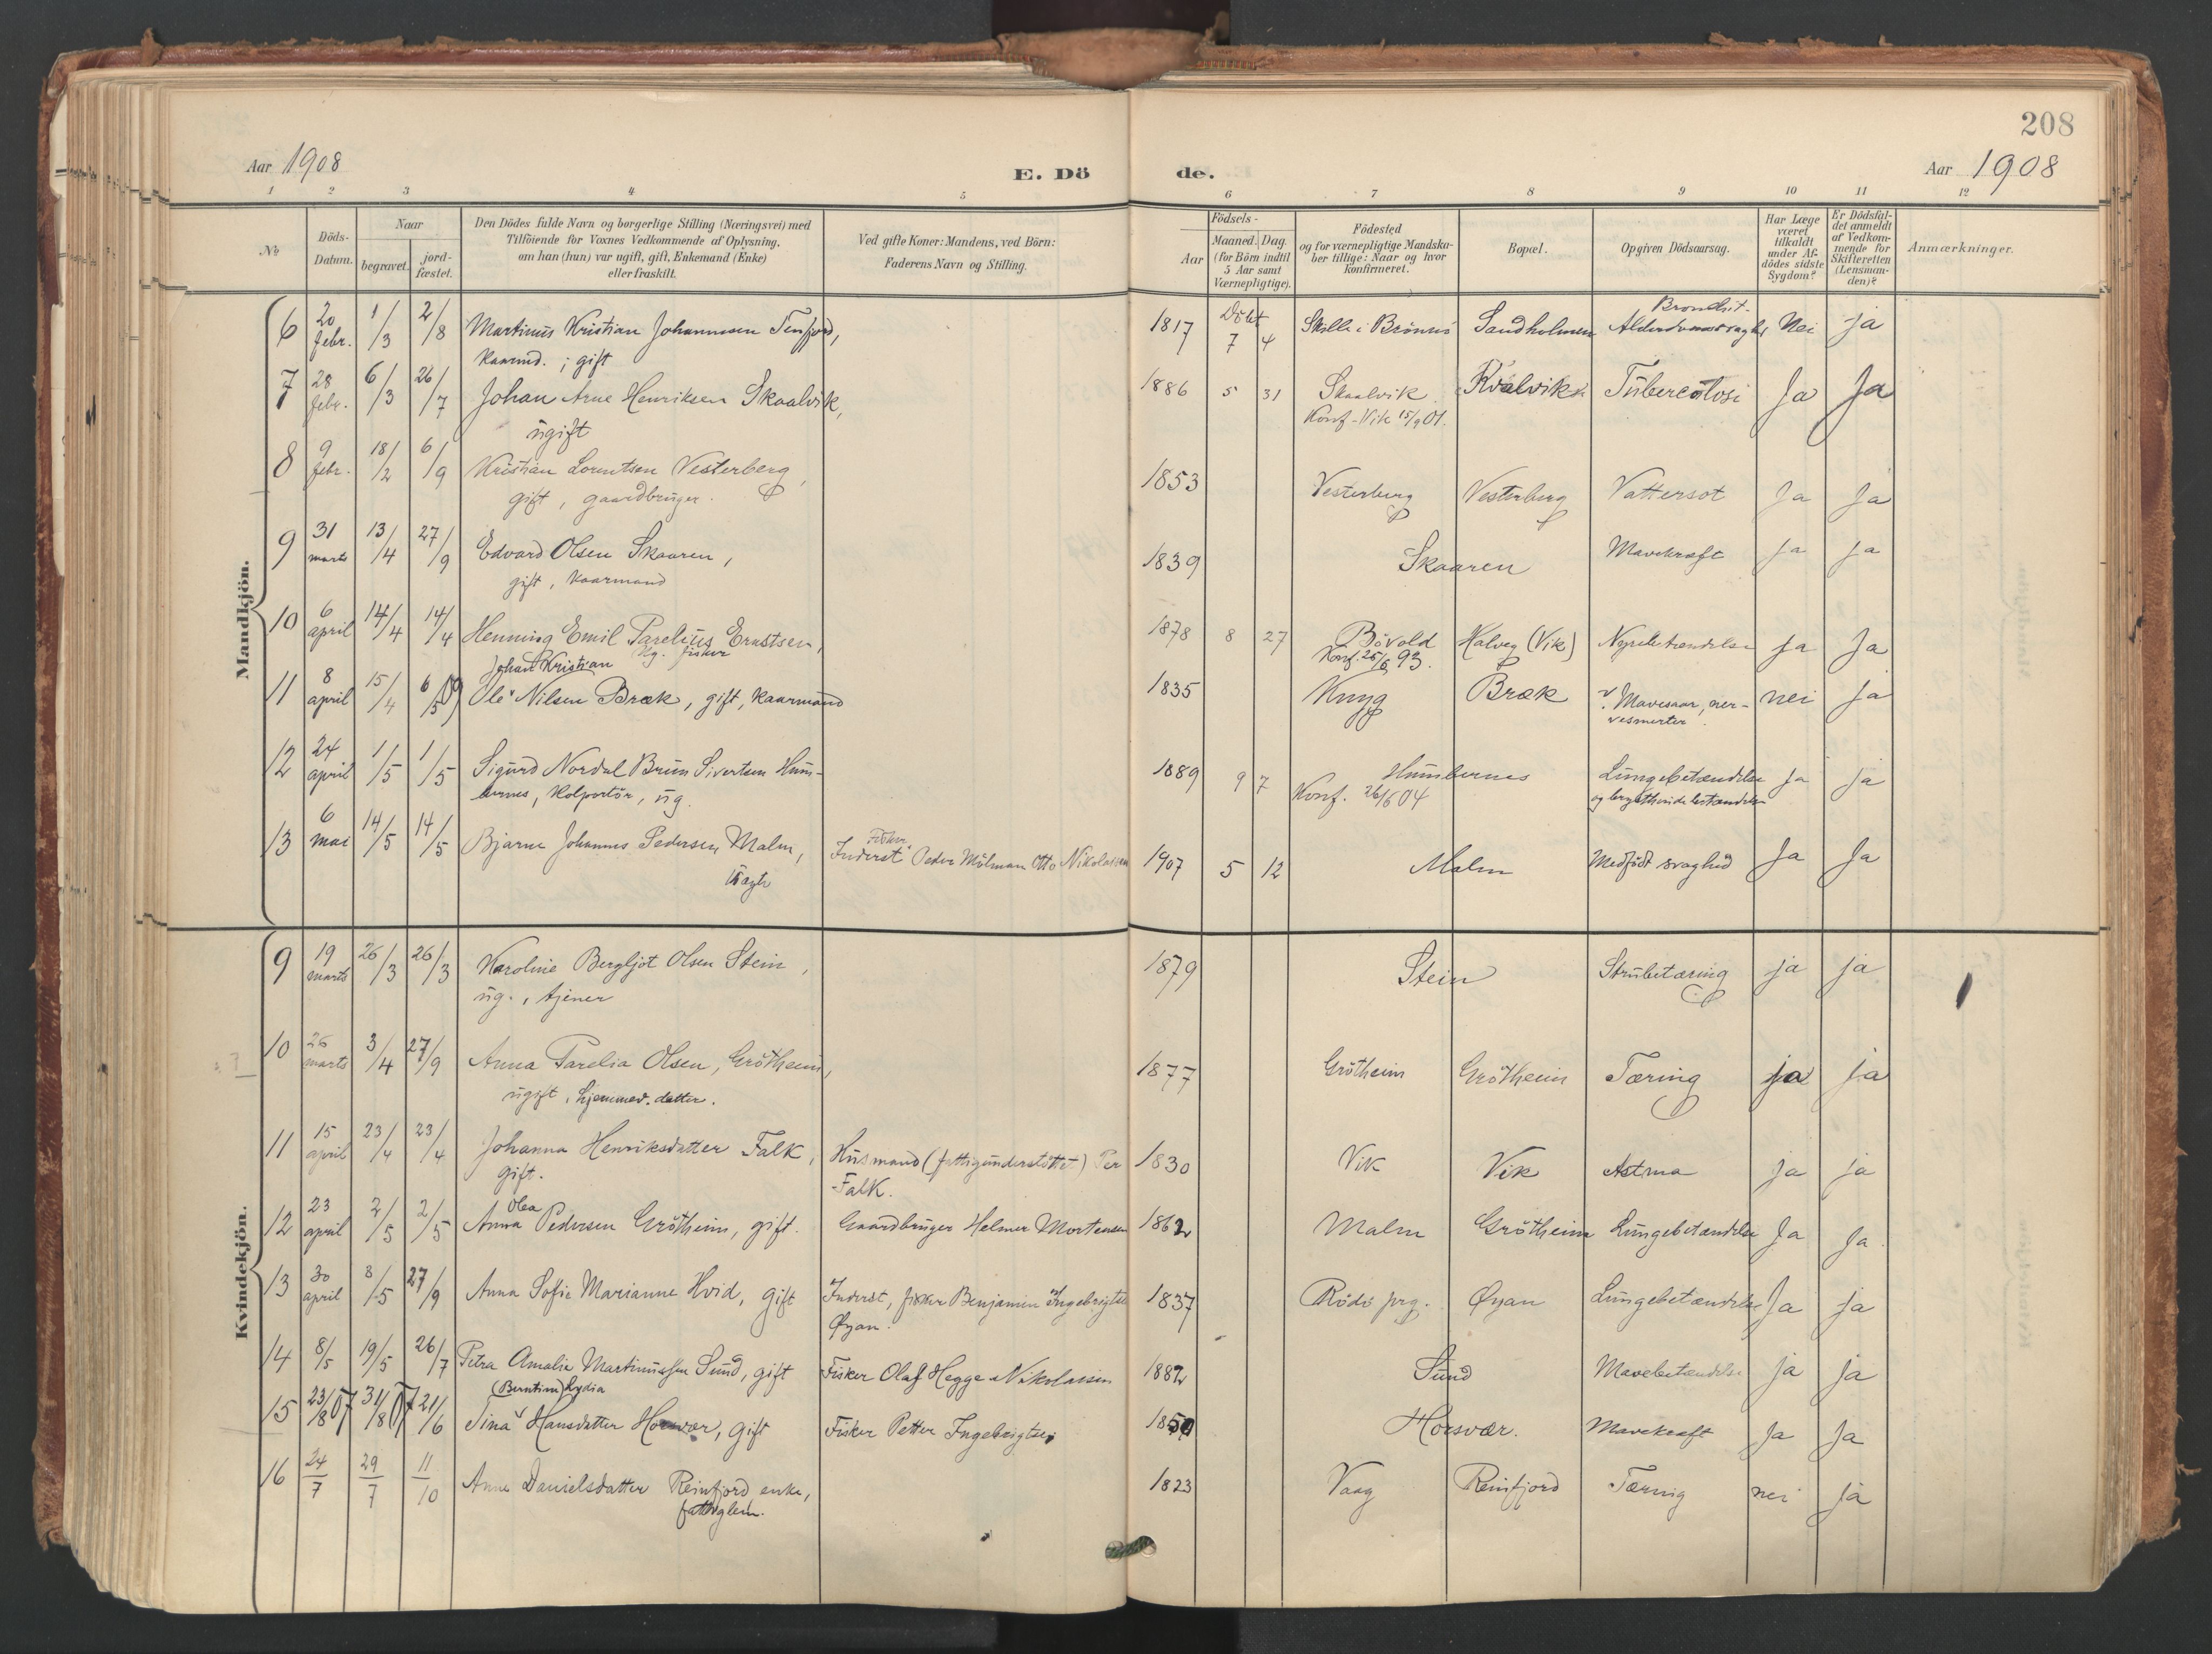 208
Aar 1908
E. Dö
de.
Aar 1908
1 2 3 4 5 6 7 8 9 10 11 12
No
Döds-Datum.
Naar
begravet.
jord-fæstet.
Den Dödes fulde Navn og borgerlige Stilling (Næringsvei) med
Tilföiende for Voxnes Vedkommende af Oplysning,
om han (hun) var ugift, gift, Enkemand (Enke)
eller fraskilt.
Ved gifte Koner: Mandens, ved Börn:
Faderens Navn og Stilling.
Födsels-
Aar
Maaned. Dag.
(for Börn indtil
5 Aar samt
Værnepligtige).
Födested
og for værnepligtige Mandska-
ber tillige: Naar og hvor
konfirmeret.
Bopæl.
Opgiven Dödsaarsag.
Har Læge
været
tilkaldt
under Af-
dödes sidste
Sygdom?
Er Dödsfal-
det anmeldt
af Vedkom-
mende for
Skifteretten
(Lensman-
den)?
Anmærkninger.
Mandkjön.
6 20 febr. 1/3 2/8 Martinus Kristian Johannesen Terfjord, 1817 Döbt 7 4 Skille i Brönnö Sandholmen Bronchit. Alderdomssvaghed Nei ja
kaarmd. ; gift
7 28 febr. 6/3 26/7 Johan Arne Henriksen Skaalvik, 1886 5 31 Skaalvik Kvalvik Tuberculosi Ja Ja
ugift Konf-Vik 15/9 01.
8 9 febr. 18/2 6/9 Kristian Lorentsen Vesterberg, 1853 Vesterberg Vesterberg Vattersot Ja Ja
gift, gaardbruger.
9 31 marts 13/4 27/9 Edvard Olsen Skaaren, 1839 Skaaren Mavekræft Ja Ja
gift, kaarmand
10 6 april 14/4 14/4 Henning Emil Parelius Erantsen, 1878 8 27 Bövold Halveg (Vik) Nyrebetændelse Ja Ja
Ug. fisker Konf. 25/6 93.
Johan Kristian
11 8 april 15/4 6/5 09 Ole Nilsen Bræk, gift, kaarmand 1835 Knyg Bræk ? Mavesaar, ner-
vesmerter. nei Ja
12 24 april 1/5 1/5 Sigurd Nordal Brun Sivertsen Hum- 1889 9 7 Humbernes Lungebetændelse Ja ja
bernes, Kolportör, ug. Konf. 26/6 04
13 6 mai 14/5 14/5 Bjarne Johannes Pedersen Malm, Fisker Inderst Peder Mölman Otto Nikolaisen 1907 5 12 Malm Medfödt svaghed Ja Ja
Uægte
Kvindekjön.
9 19 marts 26/3 26/3 Karoline Bergljot Olsen Stein, 1879 Stein Strubetæring ja ja
ug., tjener
10 26 marts 3/4 27/9 Anna Parelia Olsen, Grötheim, 1877 Grötheim Grötheim Tæring ja ja
ugift, hjemmev. datter.
11 15 april 23/4 23/4 Johanna Henriksdatter Falk, Husmand (fattigunderstöttet) Per 1830 Vik Vik Astma ja ja
gift. Falk.
Olea
12 23 april 2/5 2/5 Anna Pedersen Grötheim, gift. Gaardbruger Helmer Mortensen 1862 Malm Grötheim Lungebetændelse Ja Ja
13 30 april 8/5 27/9 Anna Sofie Marianne Hvid, gift Inderst, fisker Benjamin Ingebrigtsen 1837 Rödö prg. Öyan Lungebetændelse Ja ja
Öyan.
14 8/5 19/5 26/7 Petra Amalie Martinussen Sund, gift Fisker Olaf Hegge Nikolaisen 1882 Sund Mavebetændelse ja ja
(Berntine) Lydia
15 23/8 07 31/8 07 21/6 Tina Hansdatter Horsvær, gift Fisker Petter Ingebrigtsen 1850 Horsvær. Mavekræft Ja Ja
16 24/7 29/7 11/10 Anne Danielsdatter Reinfjord enke, 1823 Vaag Reinfjord Tæring nei ja
fattiglem.